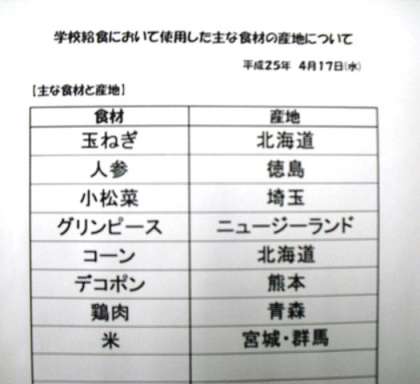 学校給食において使用した主な食材の産地について
平成25年 4月17日(水)
【主な食材と産地】
食材 産地
玉ねぎ 北海道
人参 徳島
小松菜 埼玉
グリンピース ニュージーランド
コーン 北海道
デコポン 熊本
鶏肉 青森
米 宮城・群馬